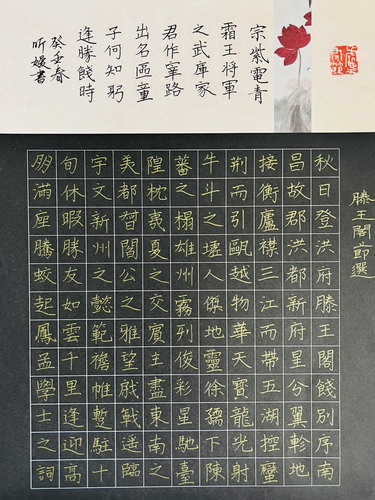 滕王閣節選
秋日登洪府滕王閣餞別序南
昌故郡洪都新府星分翼軫地
接衡廬襟三江而帶五湖控蠻
荊而引甌越物華天寶龍光射
牛斗之墟人傑地靈徐孺下陳
蕃之榻雄州霧列俊彩星馳臺
隍枕夷夏之交賓主盡東南之
美都督閻公之雅望棨戟遙臨
宇文新州之懿範襜帷暫駐十
旬休暇勝友如雲千里逢迎高
朋滿座騰蛟起鳳孟學士之詞
宗紫電青
霜王將軍
之武庫家
君作宰路
出名區童
子何知躬
逢勝餞時
癸春
听媛書